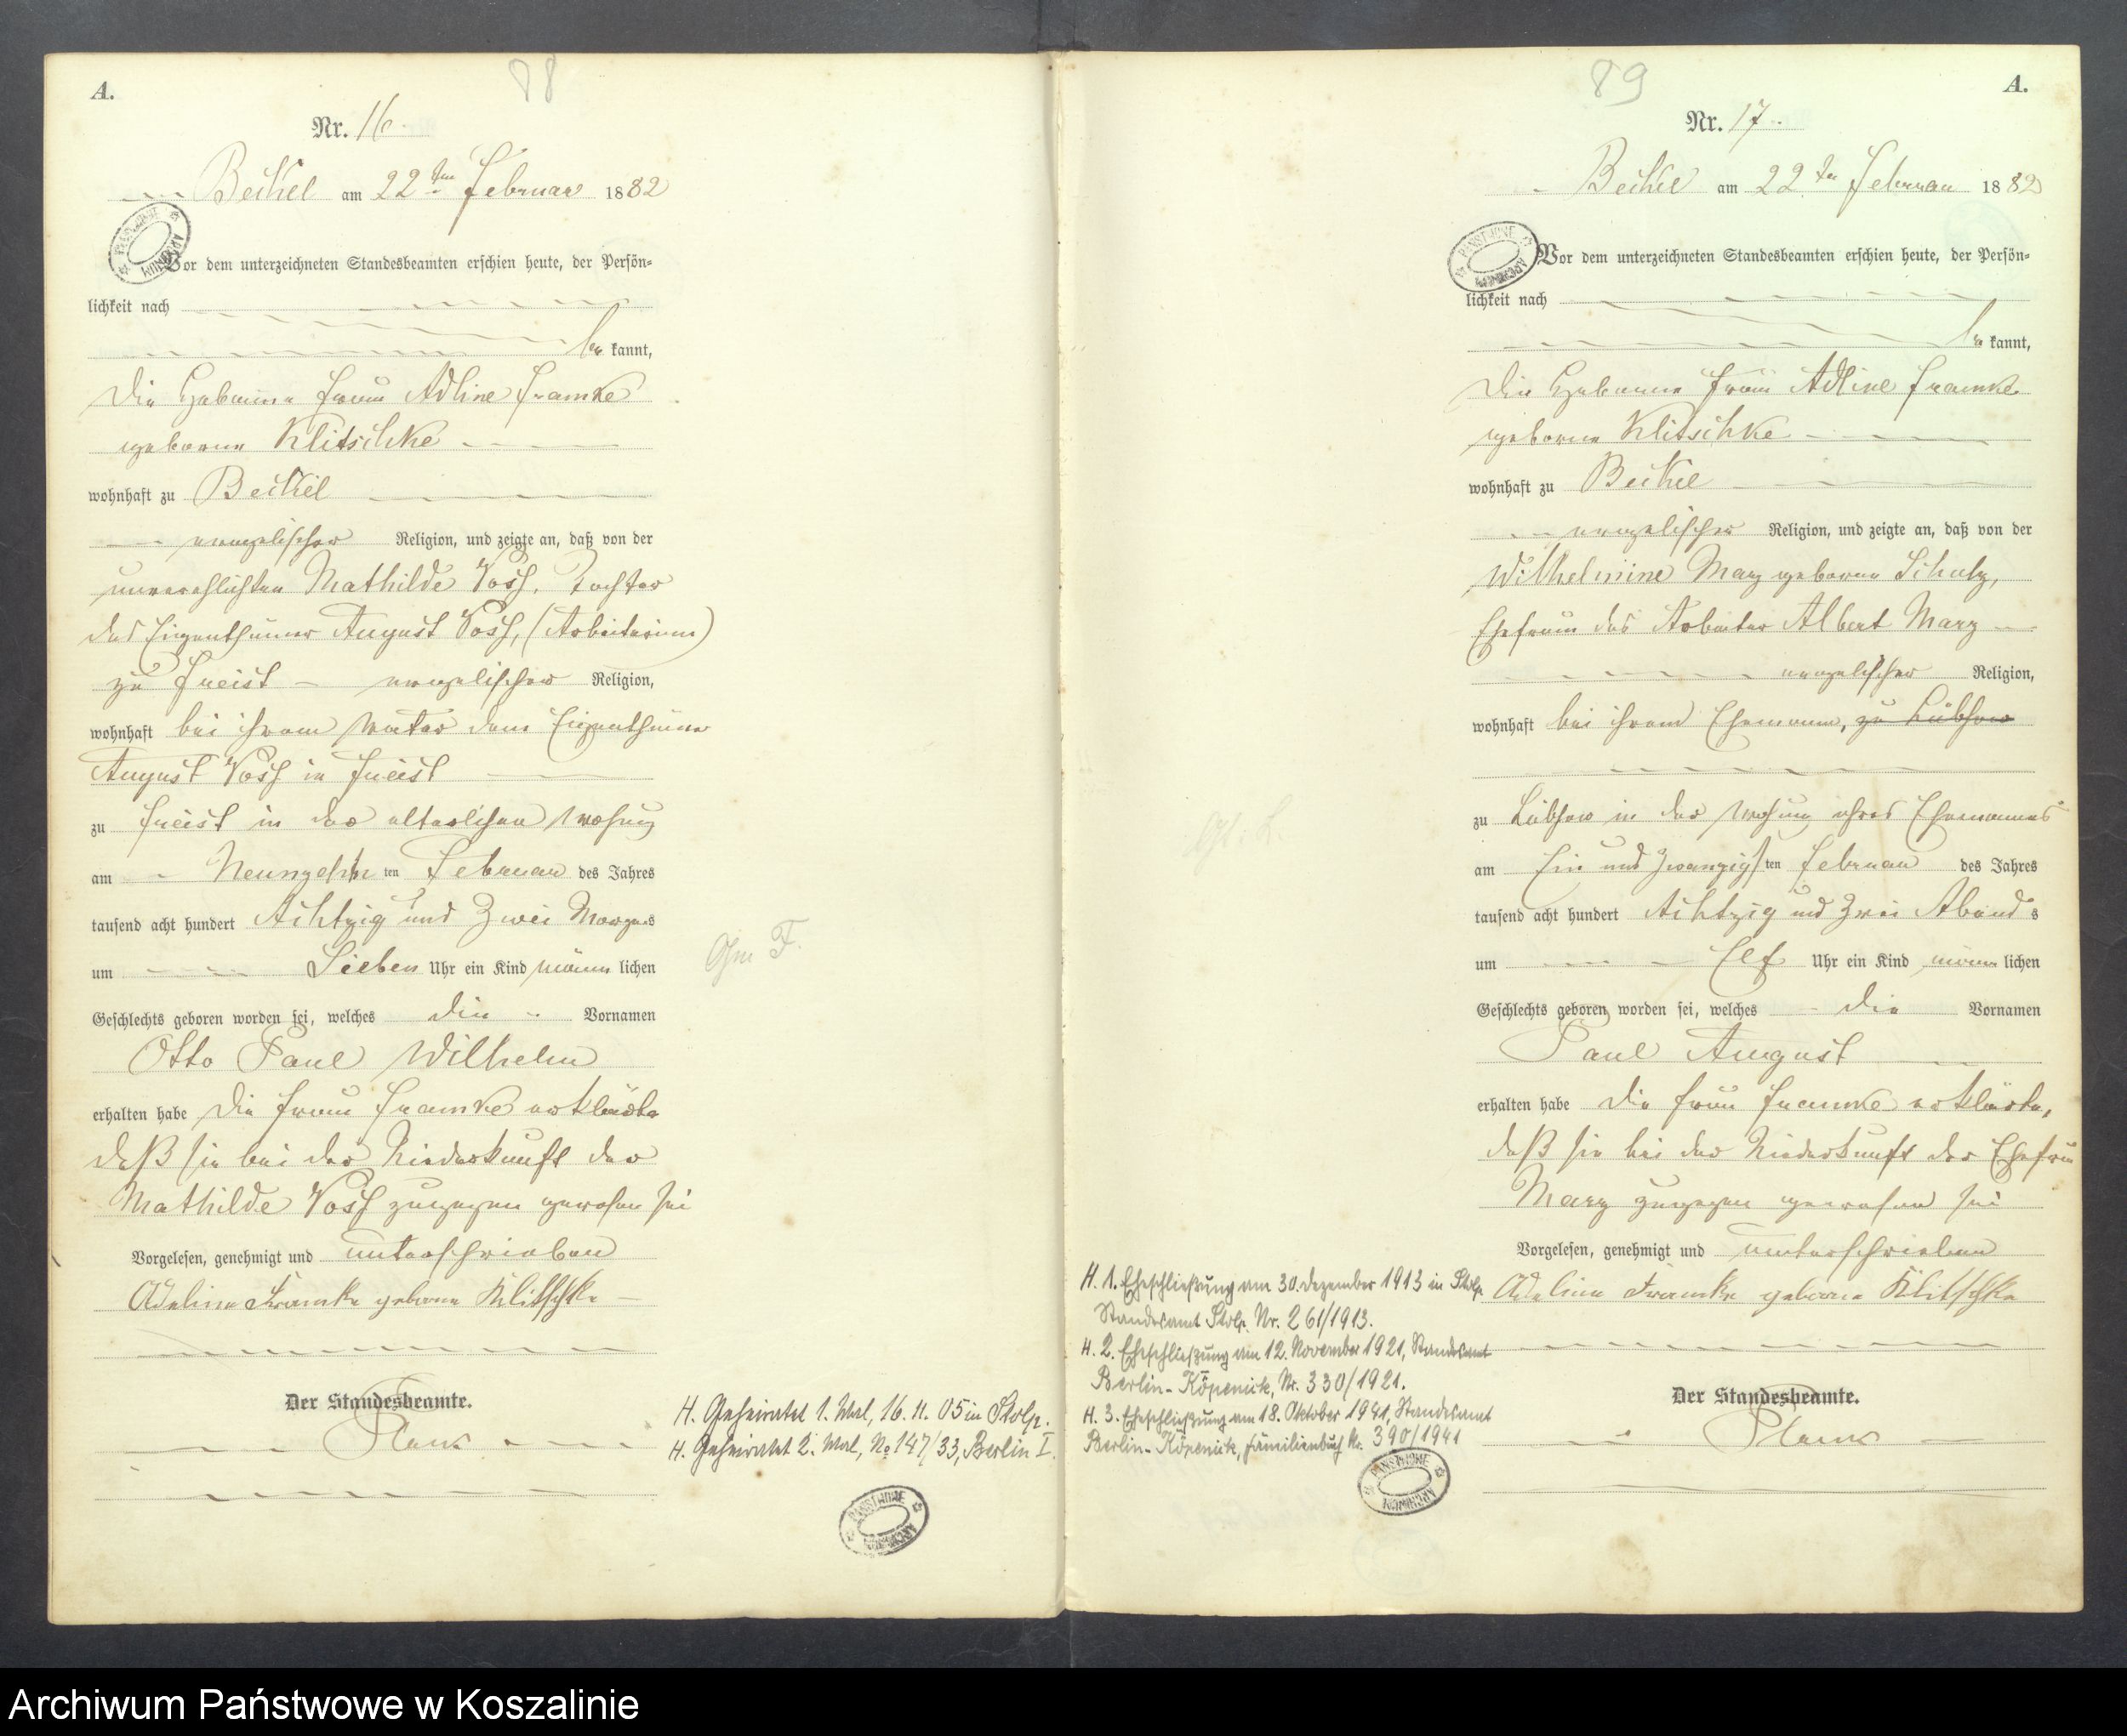 A.
88
Nr. 16
Beckel am 22ten Februar 1882
PAŃSTWOWE ARCHIWUM
Vor dem unterzeichneten Standesbeamten erschien heute, der Persön-
lichkeit nach
be kannt,
die Hebamme Frau Adline Framke
geborne Klitschke
wohnhaft zu Beckel
evangelischer Religion, und zeigte an, daß von der
unverehlichten Mathilde Voss, Tochter
des Eigenthümer August Voss, (Arbeiterin)
zu Freist evangelischer Religion,
wohnhaft bei ihrem Vater dem Eigenthümer
August Voss in Freist
zu Freist in der elterlichen Wohnung
am Neunzehn ten Februar des Jahres
tausend acht hundert Achtzig und Zwei Morgens
um Sieben Uhr ein Kind männ lichen
Geschlechts geboren worden sei, welches die Vornamen
Otto Paul Wilhelm
erhalten habe die Frau Framke erklärte
daß sie bei der Niederkunft der
Mathilde Voss zugegen gewesen sei
Vorgelesen, genehmigt und unterschrieben
Adeline Framke geborne Klitschke
Der Standesbeamte.
H. Geheiratet 1. Mal, 16. 11. 05 in Stolp.
H. Geheiratet 2. Mal, No 147/33, Berlin I.
PAŃSTWOWE ARCHIWUM
89
A.
Nr. 17.
Beckel am 22ten Februar 1882
PAŃSTWOWE ARCHIWUM
Vor dem unterzeichneten Standesbeamten erschien heute, der Persön-
lichkeit nach
be kannt,
die Hebamme Frau Adline Framke
geborne Klitschke
wohnhaft zu Beckel
evangelischer Religion, und zeigte an, daß von der
Wilhelmine Marz geborne Scholz,
Ehefrau des Arbeiter Albert Marz
evangelischer Religion,
wohnhaft bei ihrem Ehemann, zu Lübzow
zu Lübzow in der Wohnung ihres Ehemannes
am Ein und zwanzigs ten Februar des Jahres
tausend acht hundert Achtzig und Zwei Abend s
um Elf Uhr ein Kind männ lichen
Geschlechts geboren worden sei, welches die Vornamen
Paul August
erhalten habe die Frau Framke erklärte,
daß sie bei der Niederkunft der Ehefrau
Marz zugegen gewesen sei
Vorgelesen, genehmigt und unterschrieben
Adeline Framke geborne Klitschke
Der Standesbeamte.
H. 1. Eheschließung am 30. Dezember 1913 in Stolp
Standesamt Stolp. Nr. 261/1913.
H. 2. Eheschließung am 12. November 1921, Standesamt
Berlin-Köpenick, Nr. 330/1921.
H. 3. Eheschließung am 18. Oktober 1941, Standesamt
Berlin-Köpenick, Familienbuch Nr. 390/1941
PAŃSTWOWE ARCHIWUM
Archiwum Państwowe w Koszalinie